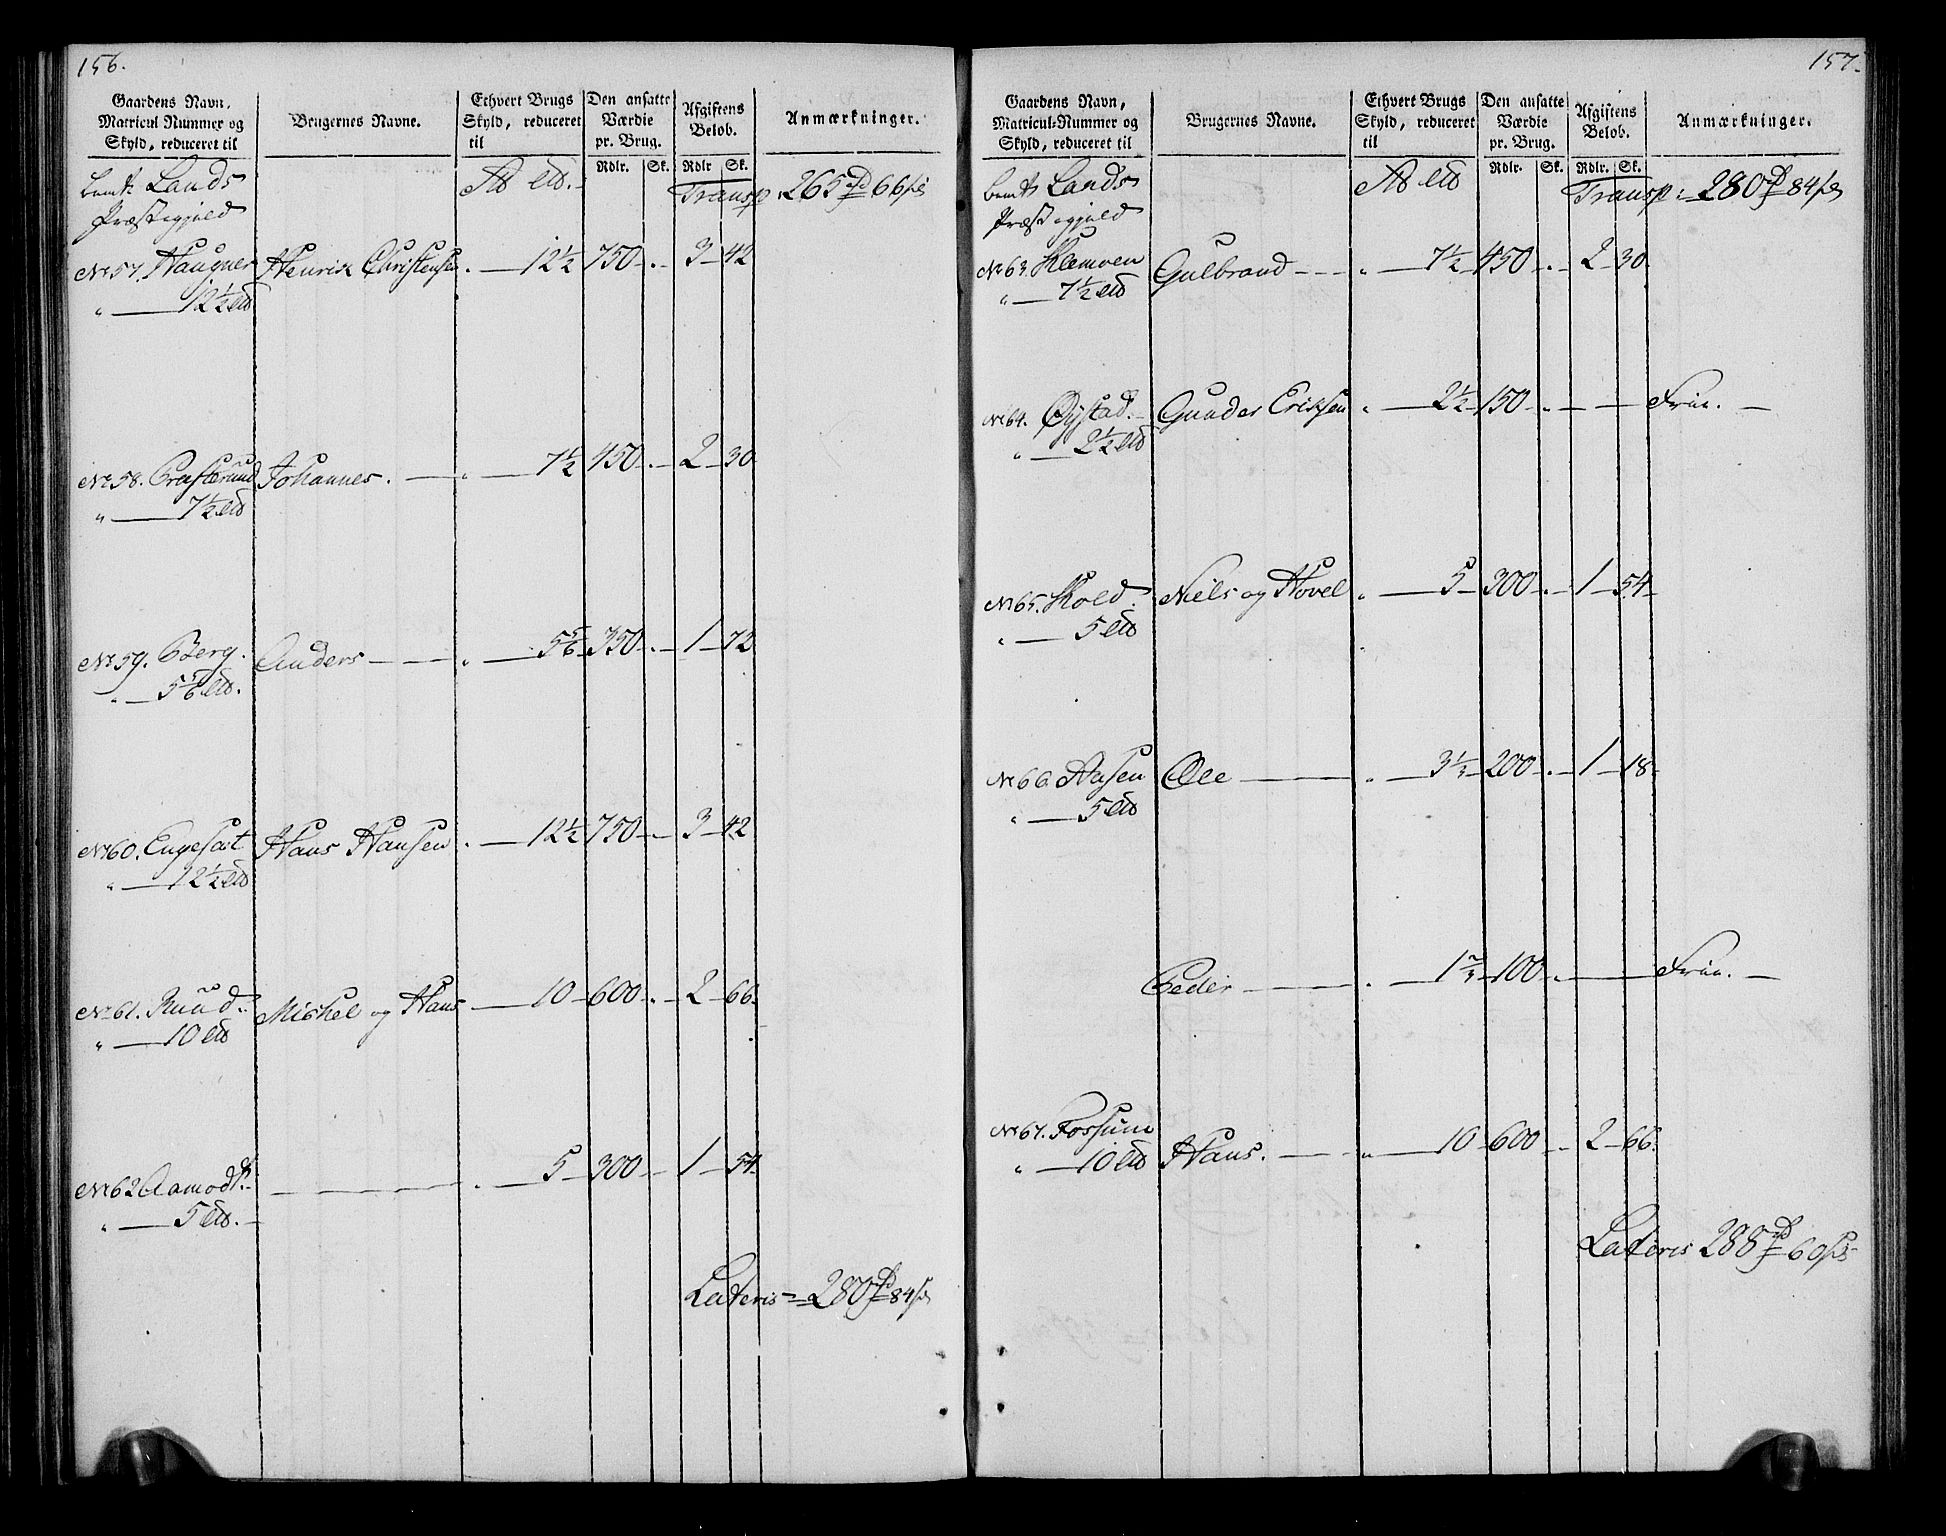 156.
Gaardens Navn, Matricul Nummer og Skyld, reduceret til
Brugernes Navne.
Ethvert Brugs Skyld, reduceret til
Den ansatte Værdie pr. Brug.
Afgiftens Beløb.
Anmærkninger.
Rdlr. Sk. Rdlr Sk.
Lands
Præstegjeld
Transp. 265 66
No 57. Haugner Henrik Christensen 12½ 750 3 42
" 12½
No 58. Johannes. 7½ 450 2 30
" 7½
No 59. Berg. Anders 5⅚ 350 1 72
" 5⅚
No 60. Engesæt Hans Hansen 12½ 750 3 42
" 12½
No 61. Ruud. Mickel og Hans 10 600 2 66
" 10
No 62 Aamodt. 5 300 1 54
" 5
Lateris 280 84
157.
Gaardens Navn, Matricul-Nummer og Skyld, reduceret til
Brugernes Navne.
Ethvert Brugs Skyld, reduceret til
Den ansatte Værdie pr. Brug.
Afgiftens Beløb.
Anmærkninger.
Rdlr. Sk. Rdlr. Sk.
Lands
Præstegjeld
Transp. 280 84
No 63. Klemoen Gulbrand 7½ 450 2 30
" 7½
No 64. Øystad. Gunder Eriksen 2½ 150 Frie.
" 2½
No 65. Kold. Niels og Hovel 5 300 1 54
" 5
No 66. Aasen Ole 3⅓ 200 1 18
" 5
Peder 1⅔ 100 Frie.
No 67. Fossum Hans. 10 600 2 66
" 10
Lateris 288 60